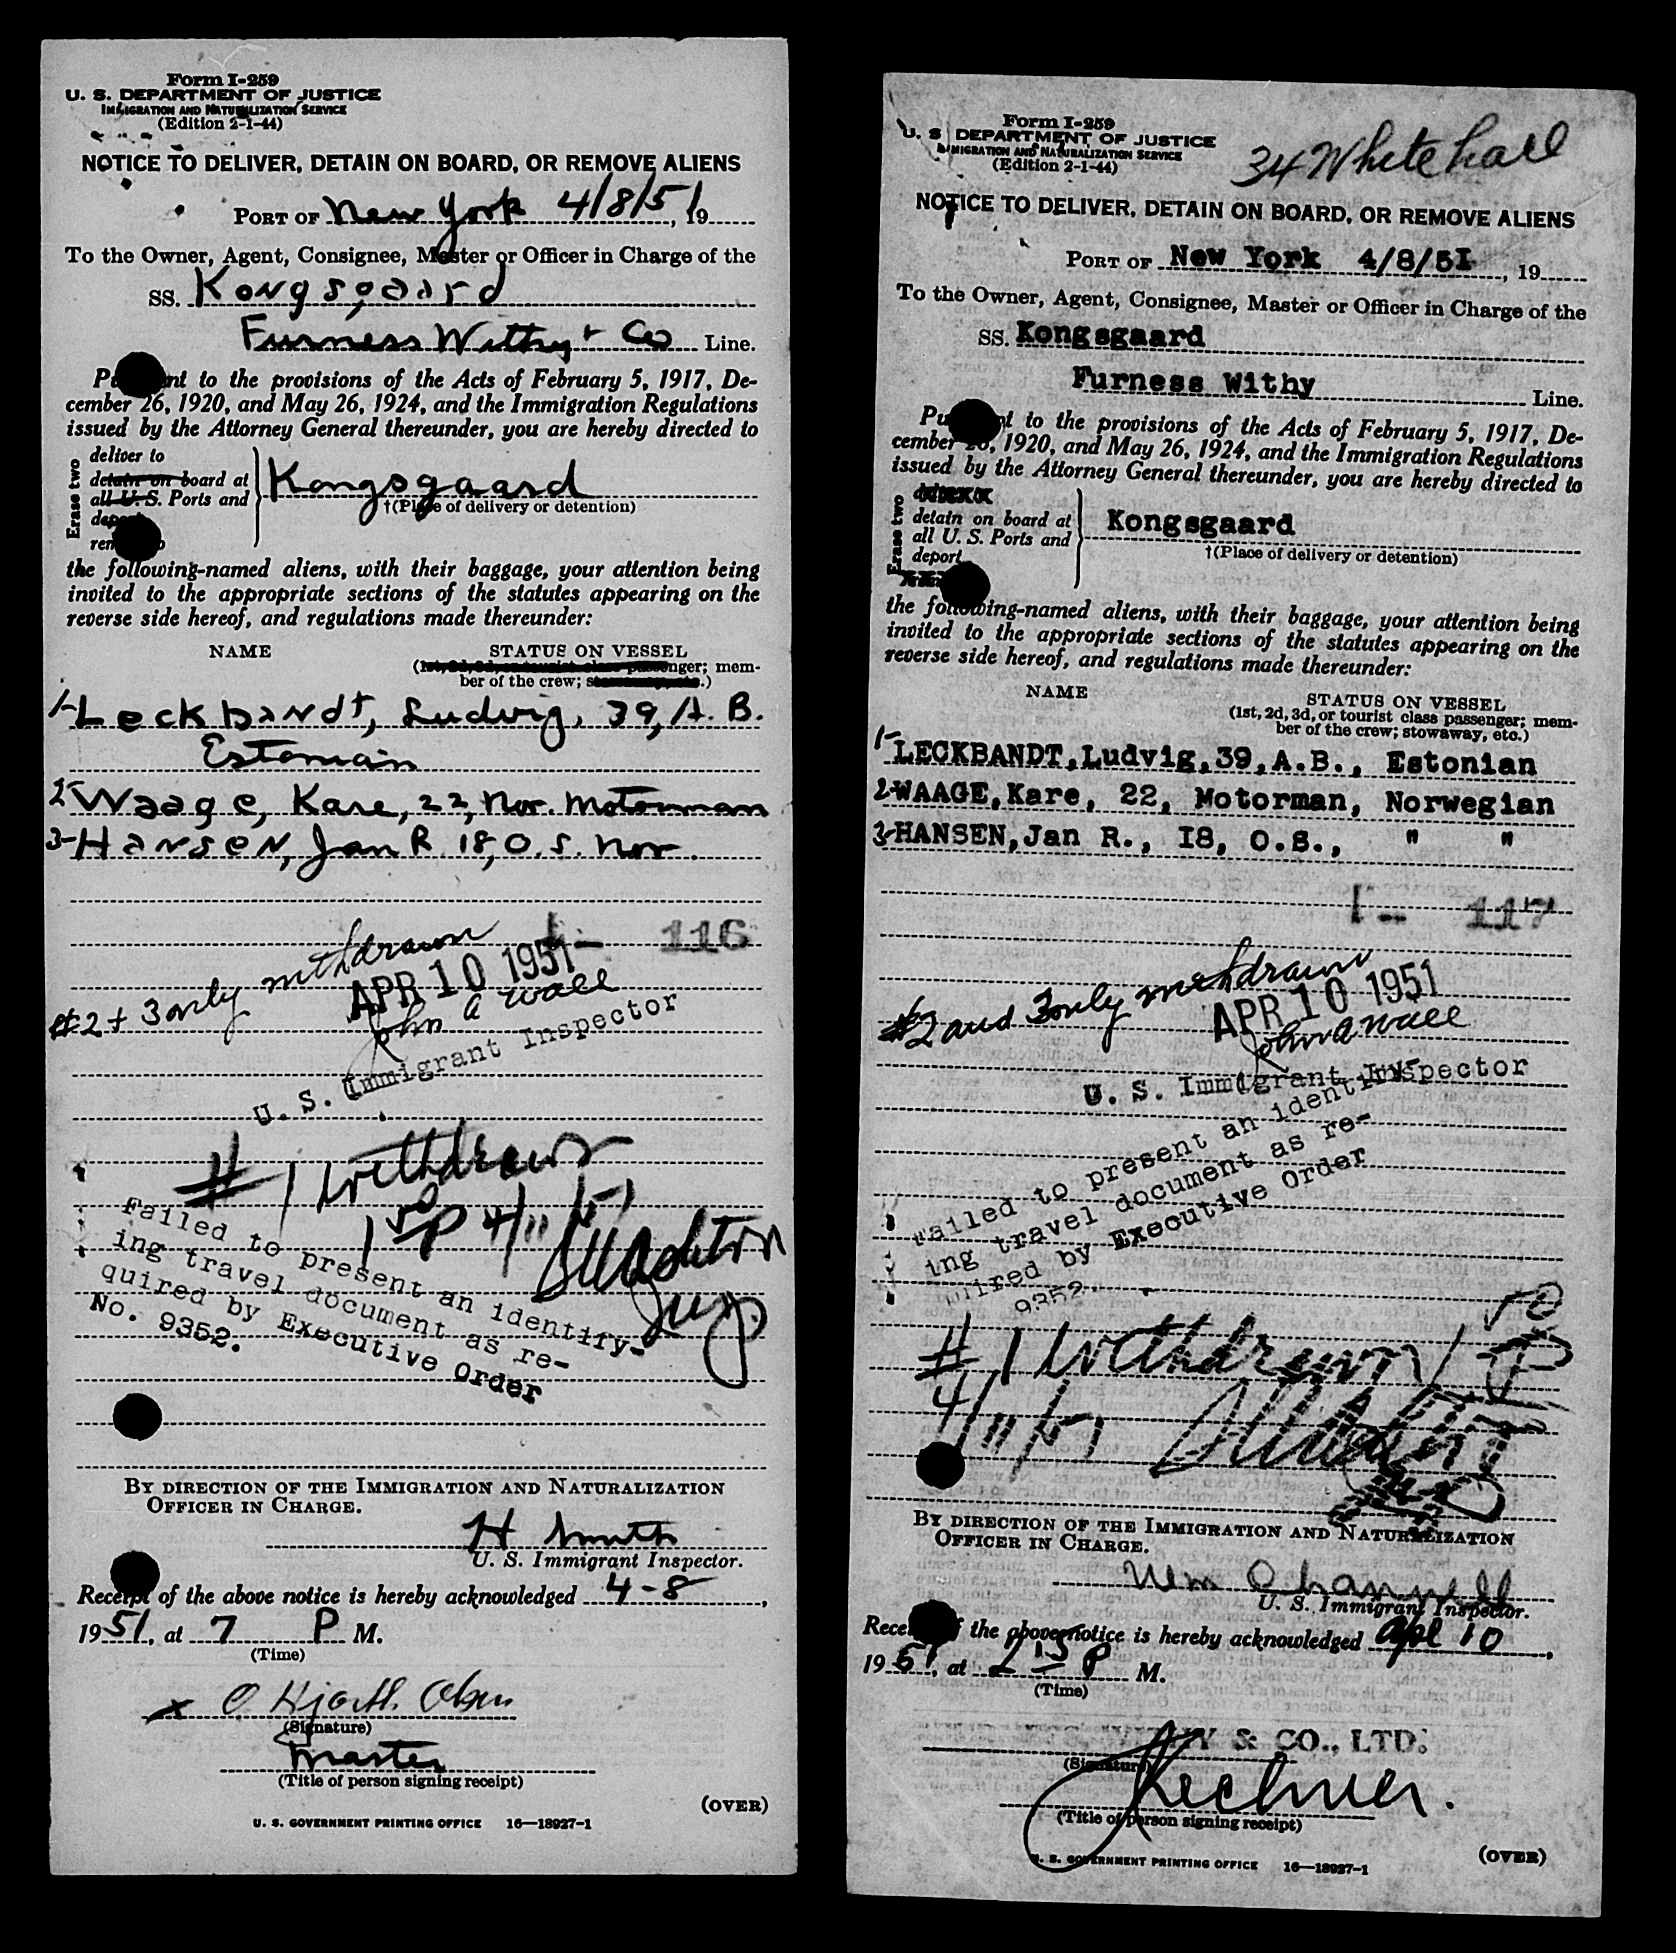 Form I-259
U. S. DEPARTMENT OF JUSTICE
IMMIGRATION AND NATURALIZATION SERVICE
(Edition 2-1-44)
NOTICE TO DELIVER, DETAIN ON BOARD, OR REMOVE ALIENS
PORT OF New York 4/8/51, 19
To the Owner, Agent, Consignee, Master or Officer in Charge of the
SS. Kongsgaard
Furness Withy & Co Line.
to the provisions of the Acts of February 5, 1917, De-
cember 26, 1920, and May 26, 1924, and the Immigration Regulations
issued by the Attorney General thereunder, you are hereby directed to
Erase two
deliver to
detain on board at
all U. S. Ports and
Kongsgaard
†(Place of delivery or detention)
the following-named aliens, with their baggage, your attention being
invited to the appropriate sections of the statutes appearing on the
reverse side hereof, and regulations made thereunder:
NAME STATUS ON VESSEL
mem-
ber of the crew;
1-Leckbandt, Ludvig, 39, A. B.
Estonian
2-Waage, Kare, 22, Nor. Motorman
3-Hansen, Jan R. 18, O. S. Nor.
1- 116
#2 + 3 only withdrawn
APR 10 1951
John A Wall
U. S. Immigrant Inspector
#1 withdrawn
4/11/51
Failed to present an identify-
ing travel document as re-
quired by Executive Order
No. 9352.
BY DIRECTION OF THE IMMIGRATION AND NATURALIZATION
OFFICER IN CHARGE.
H Smith
U. S. Immigrant Inspector.
Receipt of the above notice is hereby acknowledged 4-8,
1951, at 7 P M.
(Time)
x O Hjorth Olsen
(Signature)
Master
(Title of person signing receipt)
(OVER)
U. S. GOVERNMENT PRINTING OFFICE 16—18927-1
34 Whitehall
Form I-259
U. S. DEPARTMENT OF JUSTICE
IMMIGRATION AND NATURALIZATION SERVICE
(Edition 2-1-44)
NOTICE TO DELIVER, DETAIN ON BOARD, OR REMOVE ALIENS
PORT OF New York 4/8/5I, 19
To the Owner, Agent, Consignee, Master or Officer in Charge of the
SS. Kongsgaard
Furness Withy Line.
to the provisions of the Acts of February 5, 1917, De-
cember 26, 1920, and May 26, 1924, and the Immigration Regulations
issued by the Attorney General thereunder, you are hereby directed to
Erase two
detain on board at
all U. S. Ports and
deport
Kongsgaard
†(Place of delivery or detention)
the following-named aliens, with their baggage, your attention being
invited to the appropriate sections of the statutes appearing on the
reverse side hereof, and regulations made thereunder:
NAME STATUS ON VESSEL
(1st, 2d, 3d, or tourist class passenger; mem-
ber of the crew; stowaway, etc.)
1-LECKBANDT,Ludvig,39,A.B., Estonian
2-WAAGE,Kare, 22, Motorman, Norwegian
3-HANSEN,Jan R., I8, O.S., " "
1- 117
#2 and 3 only withdrawn
APR 10 1951
John A Wall
U. S. Immigrant Inspector
Failed to present an identify-
ing travel document as re-
quired by Executive Order
9352.
#1 withdrawn
4/11/51
BY DIRECTION OF THE IMMIGRATION AND NATURALIZATION
OFFICER IN CHARGE.
U. S. Immigrant Inspector.
the above notice is hereby acknowledged Apl 10,
1951, at 2 15 P M.
(Time)
Y & CO., LTD.
(Signature)
(Title of person signing receipt)
(OVER)
U. S. GOVERNMENT PRINTING OFFICE 16—18927-1